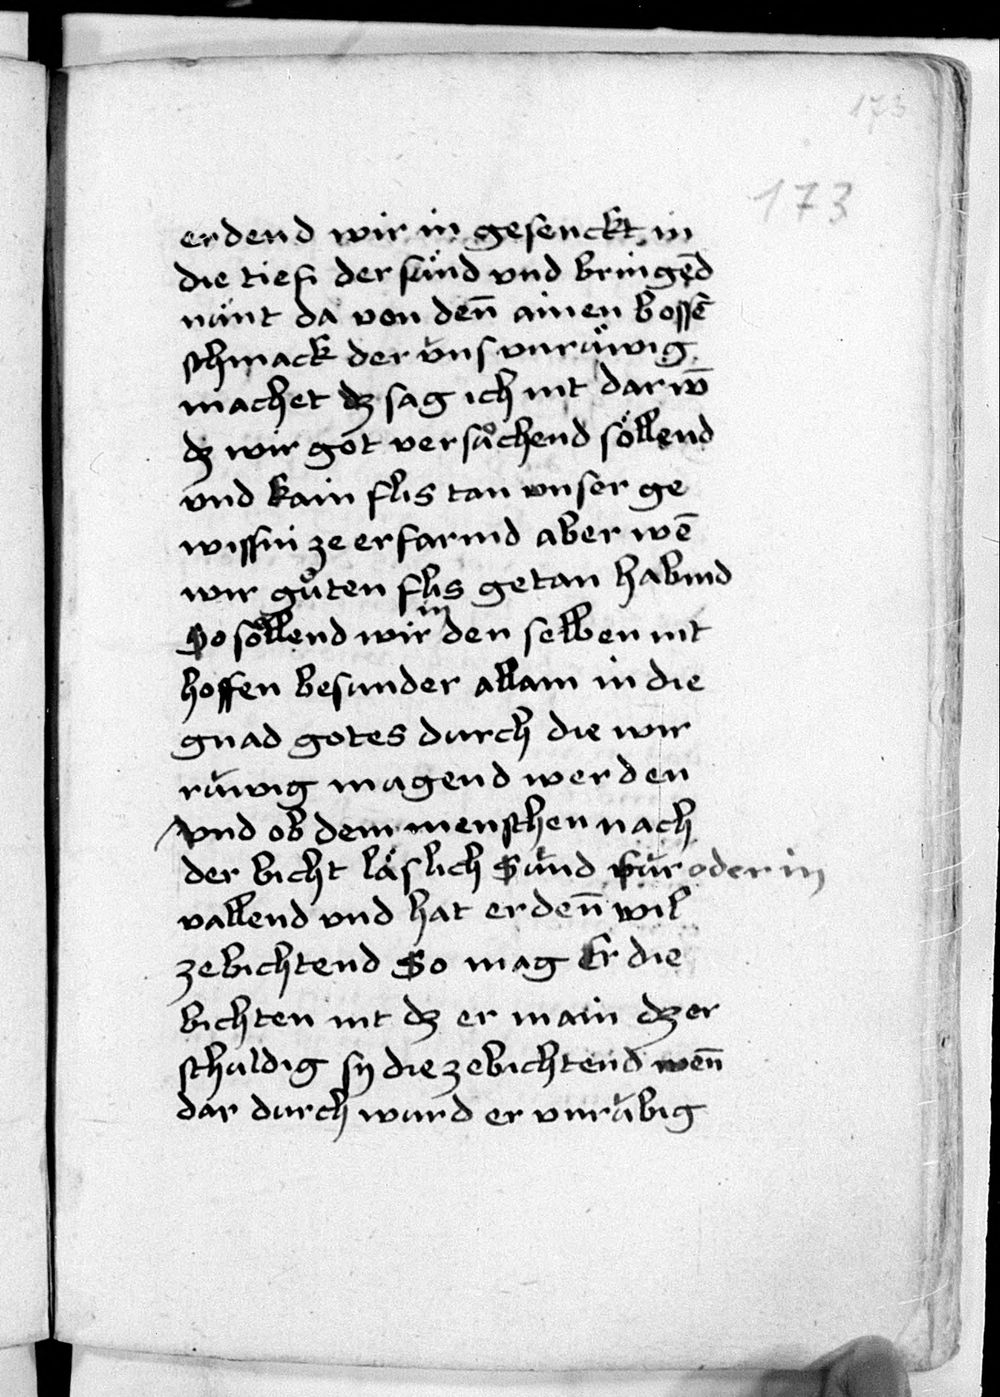 173
173
erdend wir in gesenckt in
die tiefi der sünd vnd bringēd
nünt da von den̄ ainen bossē
schmack der v̈ns vnrüwig
machet dz sag ich nit dar vm̄
dz wir got versůchend söllend
vnd kain flis tan vnser ge
wissin ze erfarind aber wē
wir gůten flis getan habind
So söllend wir in den selben nit
hoffen besunder allain in die
gnad gotes durch die wir
rüwig magend werden
vnd ob dem menschen nach
der bicht läslich Sünd für oder in
vallend vnd hat er den̄ wil
ze bichtend So mag Er die
bichten nit dz er main dz er
schuldig sy die ze bichtend wen̄
dar durch wurd er vnrübig